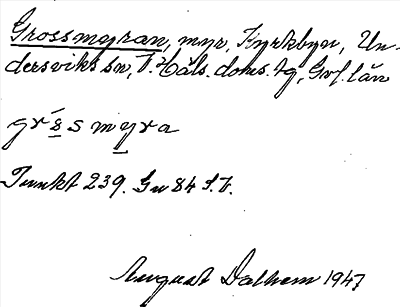 Grossmyran, myr, Kyrkbyn, Un-
dersviks sn, V. Häls. doms. tg, Gvl. län
gróssmyra
Punkt 239. Gu 84 S.V.
August Dalhem 1947